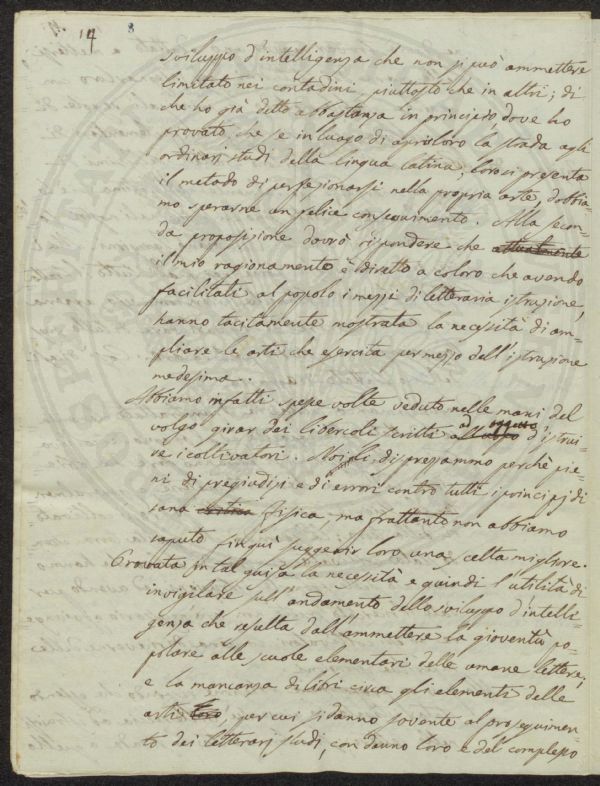 14 8
sviluppo d'intelligenza che non si può ammettere
limitato nei contadini piuttosto che in altri; di
che ho già detto abbastanza in principio dove ho
provato che se in luogo di aprir loro la strada agli
ordinarj studi della lingua latina, loro si presenta
il metodo di perfezionarsi nella propria arte, dobbia=
mo sperarne un felice conseguimento. Alla secon=
da proposizione dovrò rispondere che attualmente
il mio ragionamento è diretto a coloro che avendo
facilitati al popolo i mezzi di letteraria istruzione,
hanno tacitamente mostrata la necessità di am=
pliare le arti che esercita per mezzo dell'istruzione
medesima.
Abbiamo infatti spesse volte veduto nelle mani del
volgo girar dei libercoli scritti ad oggetto d'istrui=
re i coltivatori. Noi li disprezzammo perchè pie=
ni di pregiudizi e di errori contro tutti i principj di
sana critica fisica, ma frattanto non abbiamo
saputo finquì suggerir loro una scelta migliore.
Provata in tal guisa la necessità e quindi l'utilità di
invigilare sull'andamento dello sviluppo d'intelli=
genza che resulta dall'ammettere la gioventù po=
polare alle scuole elementari delle umane lettere,
e la mancanza di libri circa gli elementi delle
arti loro, per cui si danno sovente al proseguimen=
to dei letterarj studi, con danno loro e del complesso